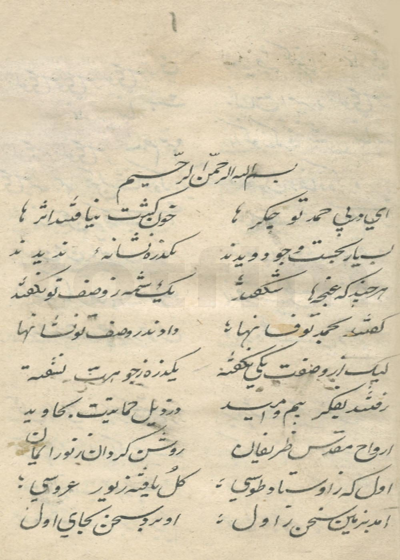 ۱
بسم الله الرحمن الرحیم
ای در پی حمد تو جگر ها خون گشت نیافتند اثر ها
بسیار بجست و جو دویدند یکذره نشانهٔ ندیدند
هر چند که غنچها شکفتند یک شمه ز وصف تو نگفتند
گفتند بحمد تو نشانها
لیک از وصفت یکی نگفته یکذره ز جوهرت نسفته
رفتند بفکر بیم و امید در ذیل حمایتت بجاوید
ارواح مقدس ظریفان روشن گردان ز نور ایمان
اول که ز اوستاد طوسی گل یافته زیور عروسی
آمد بزمین سخن ز اول او برد سخن بجای اول